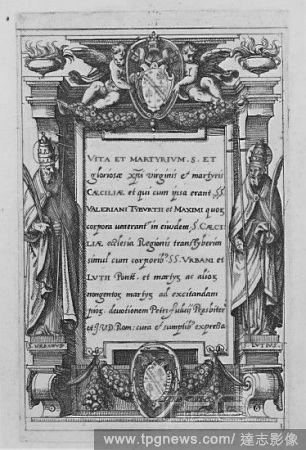 VITA ET MARTYRIVM. S. ET
gloriosæ xpi virginis & martyris
CÆCILIÆ et qui cum ipsa erant SS.
VALERIANI TYBVRTII et MAXIMI quoq
corpora venerant in eiusdem S. CÆCI
LIÆ ecclesia Regionis transtyberim
simul cum corporib SS. VRBANI et
LVTII Pont. et martyr ac alios
nongentos martyr ad excitandam
pior. devotionem Petri Julii Presbiter
et J.V.D. Rom: cura & sumptib expressa
S. VRBANVS
LVTIVS
www.tpgnews.com/ 達志影像